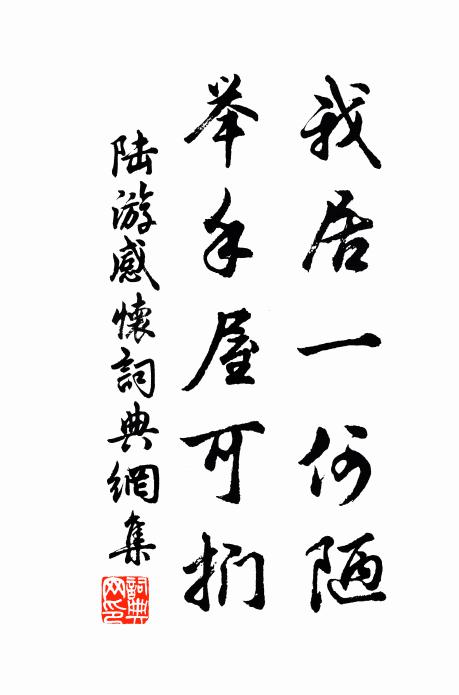 我居一何陋
举手屋可捫
陆游感懷詞典網集
詞典网印